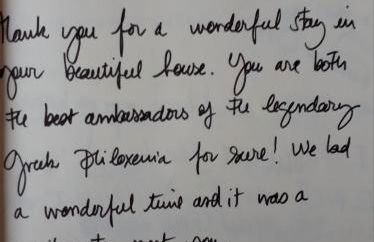 Thank you for a wonderful stay in
your beautiful house. You are both
the best ambassadors of the legendary
Greek Philoxenia for sure! We had
a wonderful time and it was a